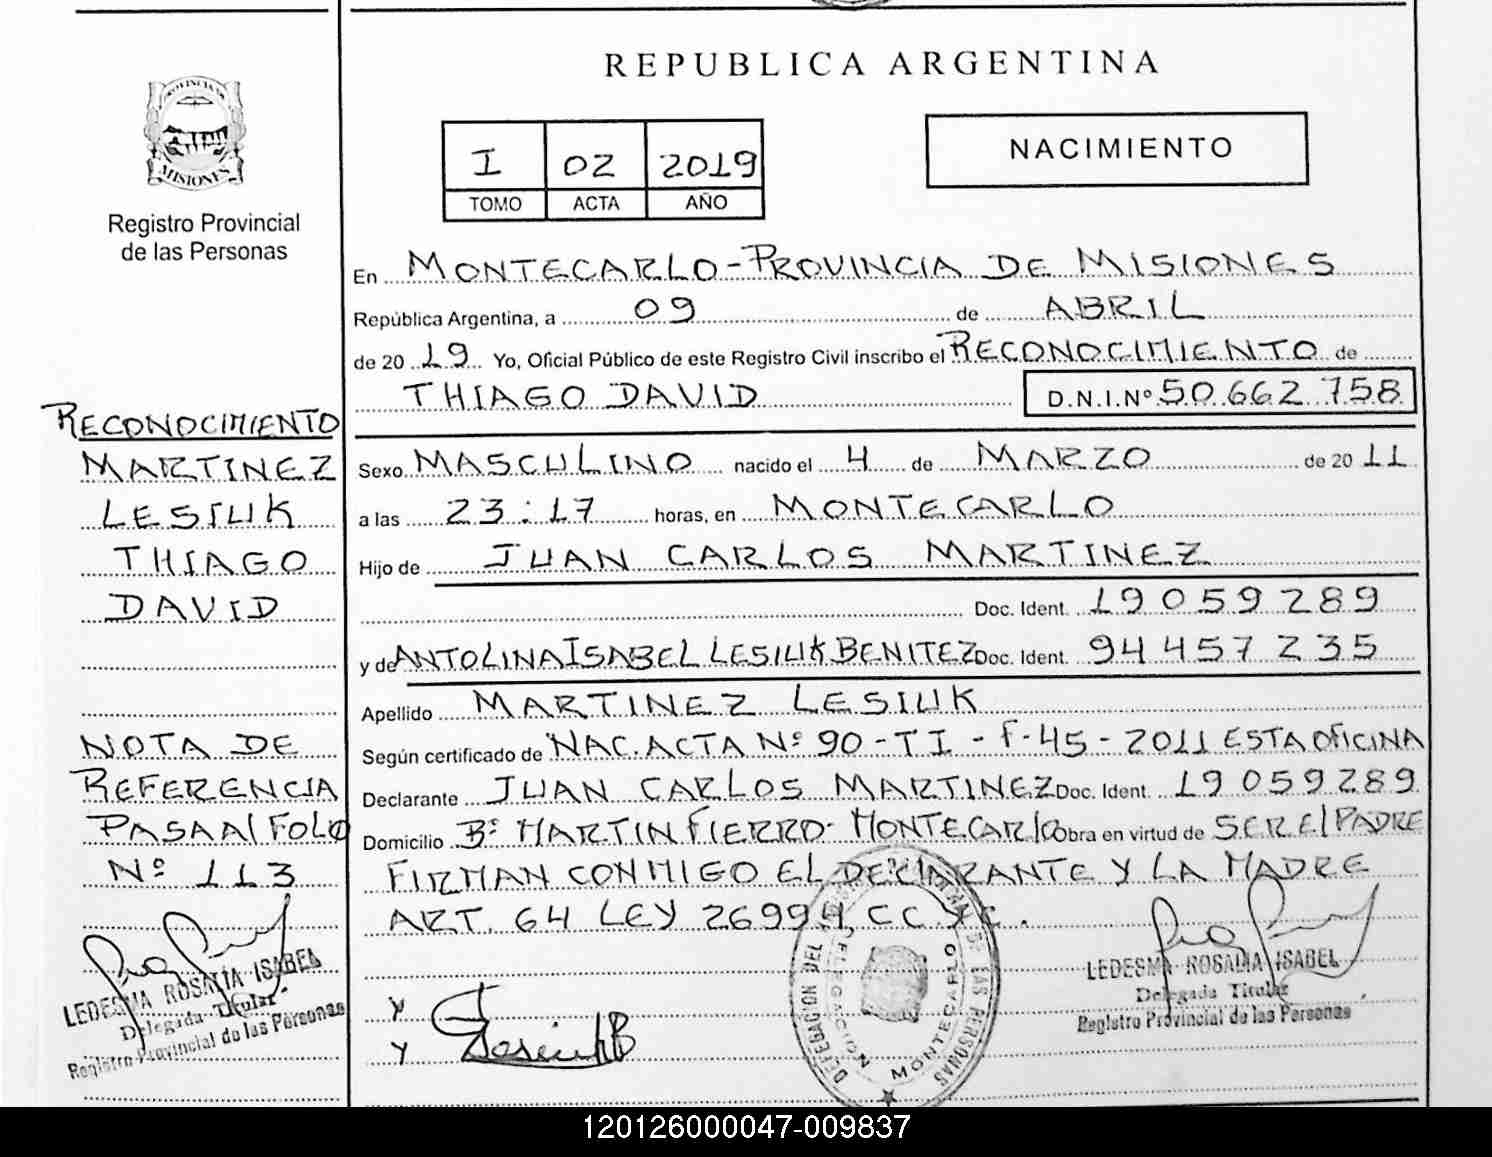 REPUBLICA ARGENTINA
PROVINCIA DE
MISIONES
Registro Provincial
de las Personas
I 02 2019
TOMO ACTA AÑO
NACIMIENTO
En MONTECARLO - PROVINCIA DE MISIONES
República Argentina, a 09 de ABRIL
de 2019 Yo, Oficial Público de este Registro Civil inscribo el RECONOCIMIENTO de
THIAGO DAVID D.N.I.Nº 50.662.758
Sexo MASCULINO nacido el 4 de MARZO de 2011
a las 23:17 horas, en MONTECARLO
Hijo de JUAN CARLOS MARTINEZ
Doc. Ident. 19059289
y de ANTOLINA ISABEL LESIUK BENITEZ Doc. Ident. 94457235
Apellido MARTINEZ LESIUK
Según certificado de NAC. ACTA Nº 90 - TI - F-45 - 2011 ESTA OFICINA
Declarante JUAN CARLOS MARTINEZ Doc. Ident. 19059289
Domicilio Bº MARTIN FIERRO - MONTECARLO Obra en virtud de SER El PADRE
FIRMAN CONMIGO EL DECLARANTE Y LA MADRE
ART. 64 LEY 26994, CC y C.
RECONOCIMIENTO
MARTINEZ
LESIUK
THIAGO
DAVID
NOTA DE
REFERENCIA
PASA Al FOLO
Nº 113
LEDESMA ROSALIA ISABEL
Delegada Titular
Registro Provincial de las Personas
DELEGACION
MONTECARLO
DE LAS PERSONAS
LEDESMA ROSALIA ISABEL
Delegada Titular
Registro Provincial de las Personas
120126000047-009837